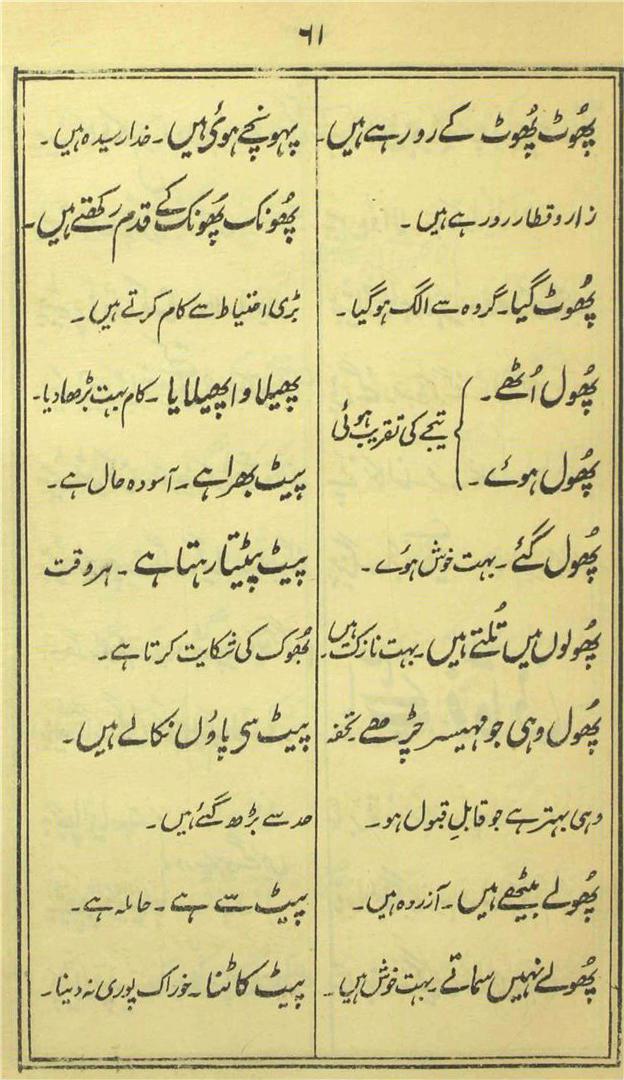 ۶۱
پھُوٹ پھُوٹ کے رو رہے ہیں۔
زار و قطار رو رہے ہیں۔
پھُوٹ گیا۔ گروہ سے الگ ہوگیا۔
پھُول اُٹھے۔
پھُول ہوئے۔
تیجے کی تقریب ہوئی
پھُول گئے۔ بہت خوش ہوئے۔
پھُولوں میں تُلتے ہیں۔ بہت نازک ہیں۔
پھُول وہی جو مہیسر چڑھے۔ تحفہ
وہی بہتر ہے جو قابلِ قبول ہو۔
پھُولے بیٹھے ہیں۔ آزردہ ہیں۔
پھُولے نہیں سماتے۔ بہت خوش ہیں۔
پہونچے ہوئی ہیں۔ خدا رسیدہ ہیں۔
پھُونک پھُونک کے قدم رکھتے ہیں۔
بڑی احتیاط سے کام کرتے ہیں۔
پھیلاوا پھیلایا۔ کام بہت بڑھا دیا۔
پیٹ بھرا ہے۔ آسودہ حال ہے۔
پیٹ پٹیتا رہتا ہے۔ ہر وقت
بھُوک کی شکایت کرتا ہے۔
پیٹ سی پاؤں نکالے ہیں۔
حد سے بڑھ گئے ہیں۔
پیٹ سے ہے۔ حاملہ ہے۔
پیٹ کاٹنا۔ خوراک پوری نہ دینا۔